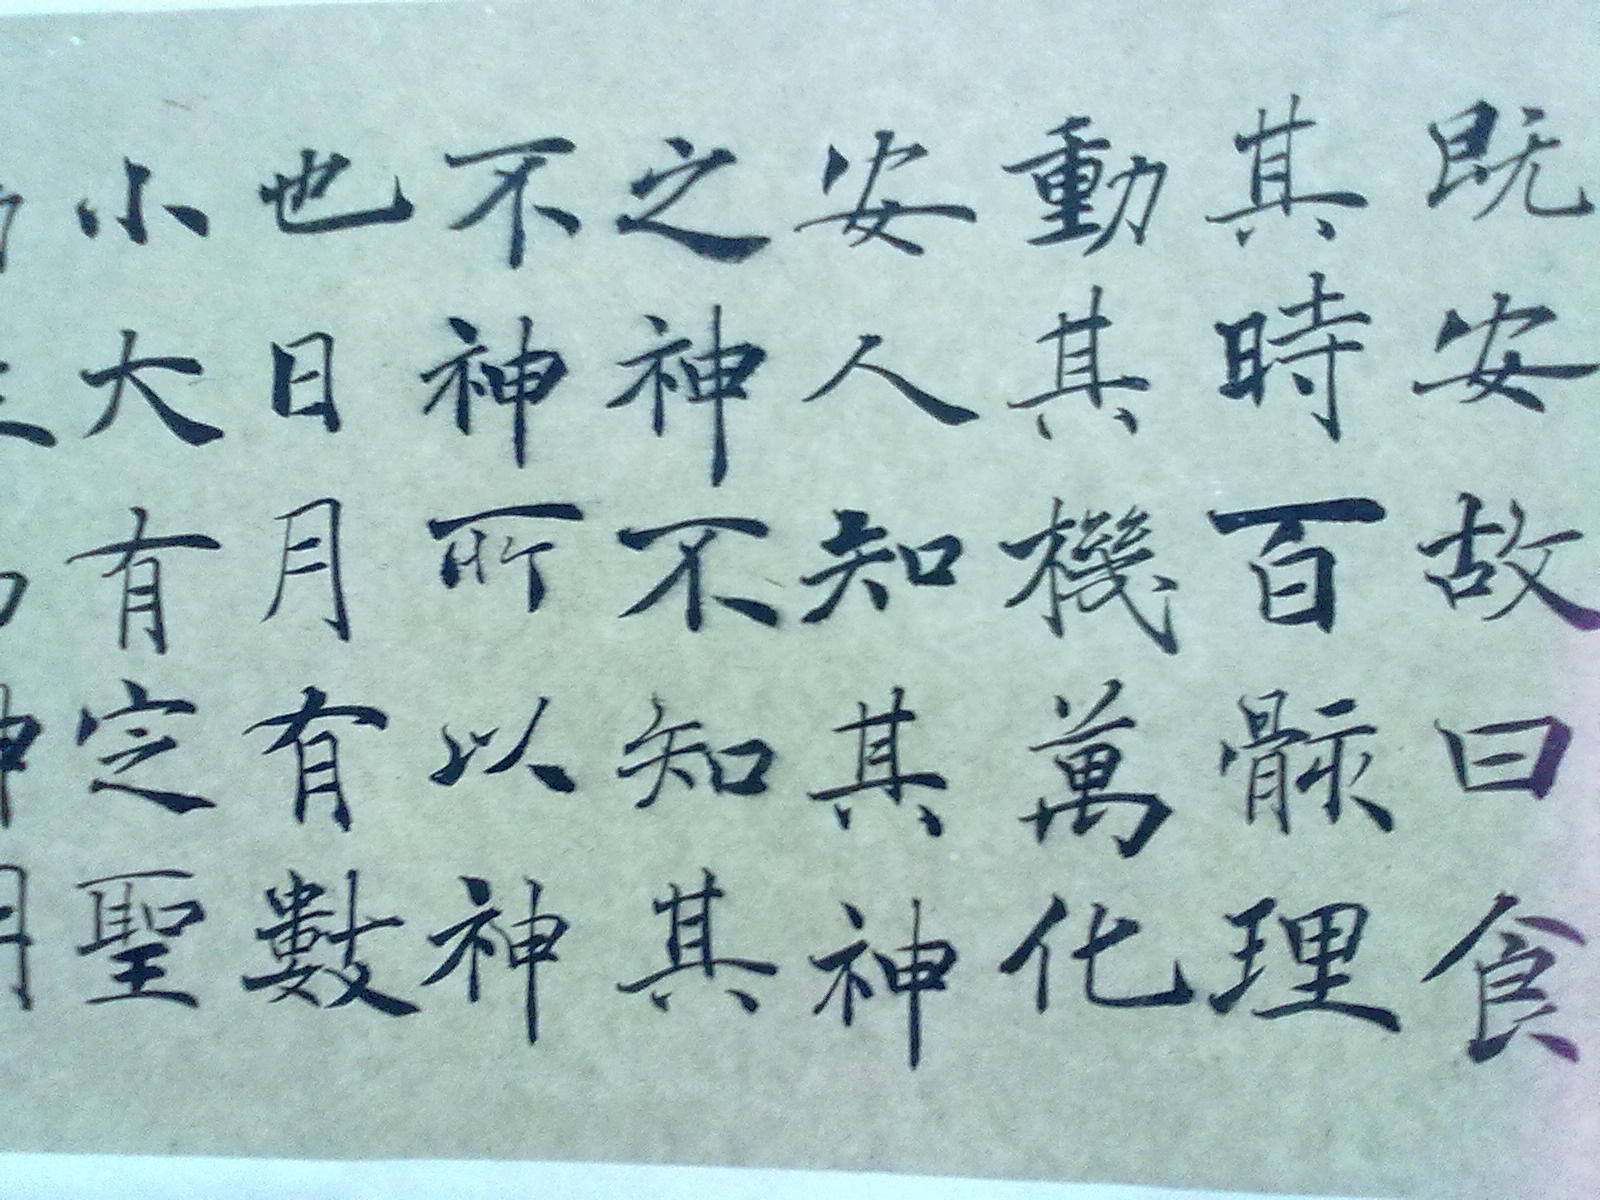 既安故曰食
其時百骸理
動其機萬化
安人知其神
之神不知其
不神所以神
也日月有數
小大有定聖